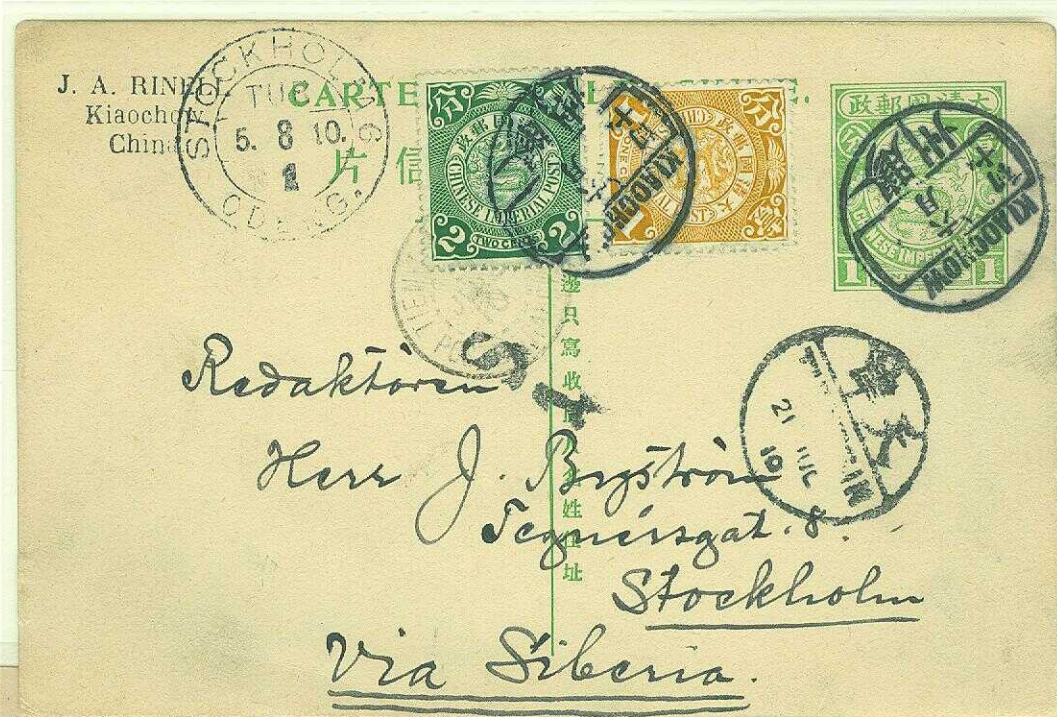 J. A. RINELL
Kiaochow
China
STOCKHOLM 6
TUR
5. 8 10.
1
ODENG.
CARTE
片 信
分
2
CHINESE IMPERIAL POST
TWO CENTS
2
分
1
大清國郵政
KIAOCHOW
大清國郵政
分
1
CHINESE IMPERIAL
1
州膠
六月
KIAOCHOW
邊只寫收
姓
址
S 1
天津
21 JUL 10
IN
Redaktören
Herr J. Bygström
Tegnérsgat. 8.
Stockholm
Via Siberia.